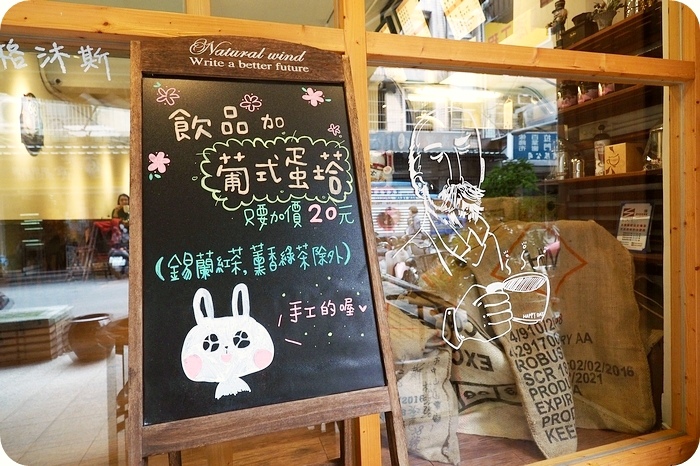 格沐斯
Natural wind
Write a better future
飲品加
葡式蛋塔
只要加價20元
(錫蘭紅茶,薰香綠茶除外)
手工的喔
HAPPY
4/910/2
429170
ROBUS
SCR 18
PRODU
EXPIR
PROD
KEE
RY AA
02/02/2016
2021